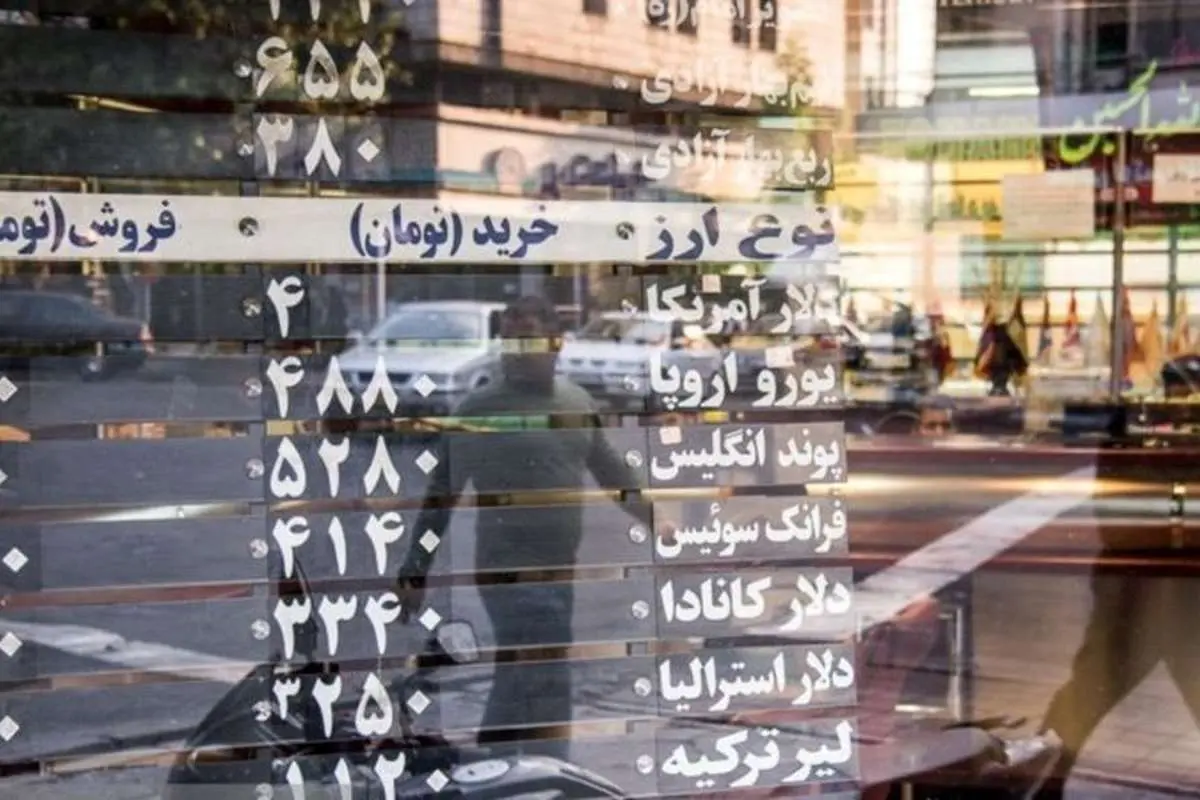 نیم بهار آزادی ۶۵۵
ربع بهار آزادی ۳۸۰
نوع ارز خرید (تومان) فروش (توم
دلار آمریکا ۴
یورو اروپا ۴۸۸۰
پوند انگلیس ۵۲۸۰
فرانک سوئیس ۴۱۴۰
دلار کانادا ۳۳۴۰
دلار استرالیا ۳۲۵۰
لیر ترکیه ۱۱۲۰